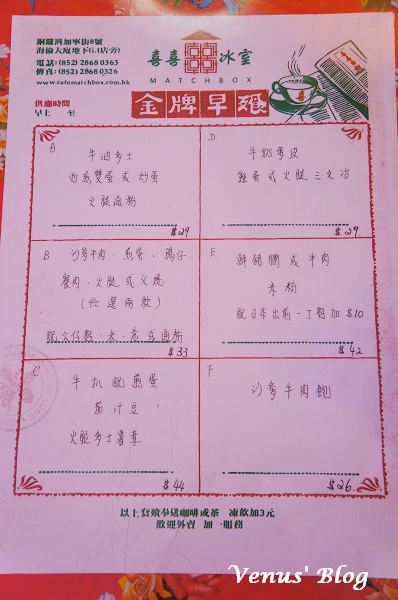 銅鑼灣加寧街8號
海倫大廈地下G.(J店旁)
電話:(852) 2868 0363
傳真:(852) 2868 0326
www.cafematchbox.com.hk
喜喜 囍囍 冰室
MATCHBOX
供應時間
早上 至
金牌早飱
A
牛油多士
西煎雙蛋或炒蛋
火腿通粉
$29
D.
牛奶麥皮
雞蛋或火腿三文治
$29.
B 沙爹牛肉、煎蛋、腸仔、
餐肉、火腿或叉燒
(任選兩款)
配公仔麵、米、意或通粉
$33
E
鮮豬膶或牛肉
米粉
配日本出前一丁麵加$10
$42
C
牛扒配煎蛋
茄汁豆
火腿多士薯茸
$44
F.
沙爹牛肉飽
$26.
以上套飱奉送咖啡或茶 凍飲加3元
歡迎外賣 加一服務
Venus' Blog